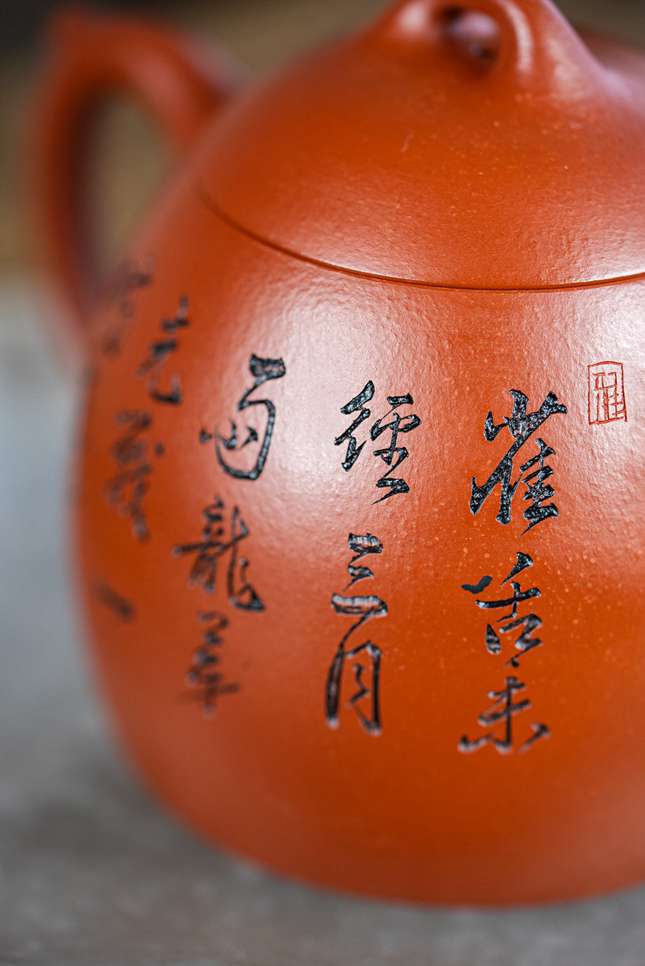 雀舌未
經三月
雨龍芽
先